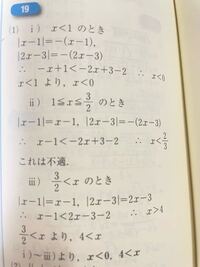 19
(1) i) x<1 のとき
|x−1|=−(x−1),
|2x−3|=−(2x−3)
∴ −x+1<−2x+3−2 ∴ x<0
x<1 より, x<0
ii) 1≦x≦3/2 のとき
|x−1|=x−1, |2x−3|=−(2x−3)
∴ x−1<−2x+3−2 ∴ x<2/3
これは不適.
iii) 3/2<x のとき
|x−1|=x−1, |2x−3|=2x−3
∴ x−1<2x−3−2 ∴ x>4
3/2<x より, 4<x
i)〜iii)より, x<0, 4<x